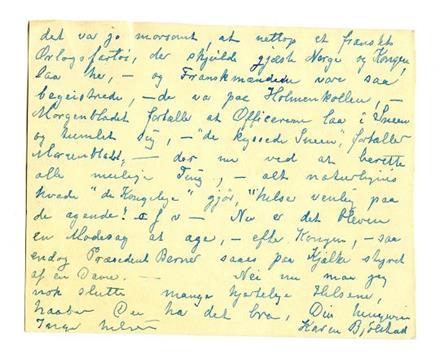 det var jo morsomt, at nettop et fransk
Orlogsfartøi, der skulde gjæste Norge og Kongen,
laa her, – og Franskmændene vare saa
begeistrede, – de va paa Holmenkollen, –
Morgenbladet fortalte at Officererne laa i Sneen
og tumlet sig, – "de kyssede Sneen", fortaller
Morgenbladt, – der nu ved at berette
alle mulige Ting, – alt naturligvis
hvade "de Kongelige" gjør, "hilser venlig paa
de agende! o f v – Nu er det bleven
en Modesag at age, – efter Kongen, – saa
endog Præsident Berner saaes paa Kjælke styret
af en Dame. – Nei nu maa jeg
nok slutte mange hjertelige Hilsener,
haaber Du ha' det bra, Din hengivne
Inga hilser Karen Bjølstad